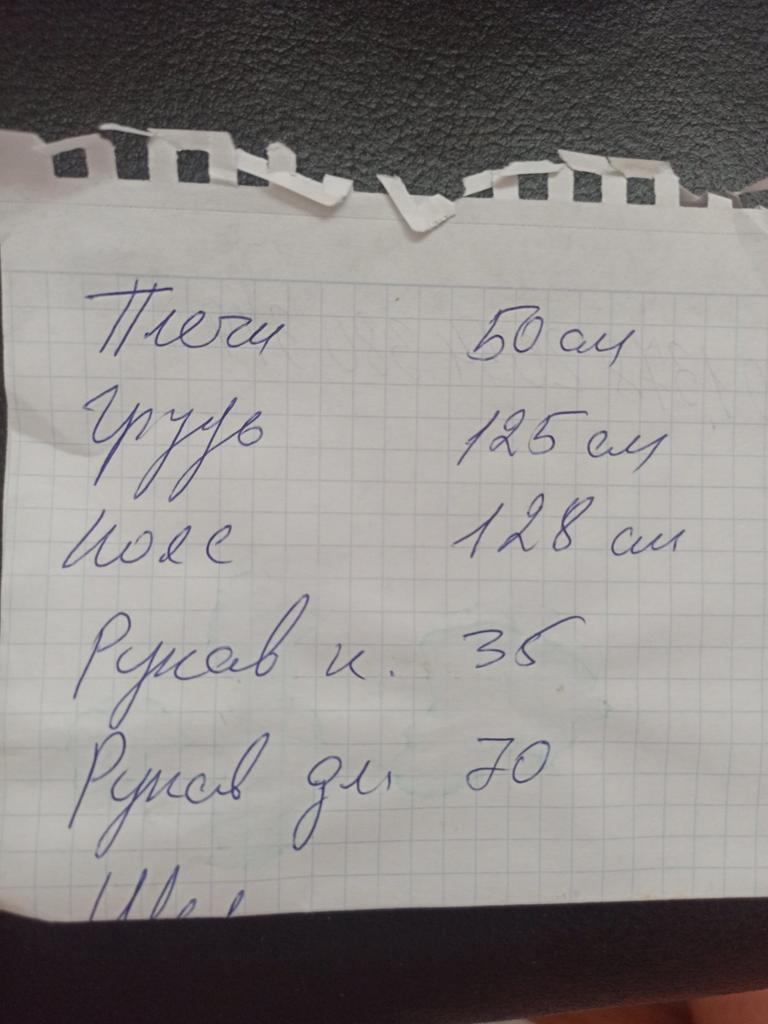 Плечи 50 см
грудь 125 см
пояс 128 см
Рукав к. 35
Рукав дл 70